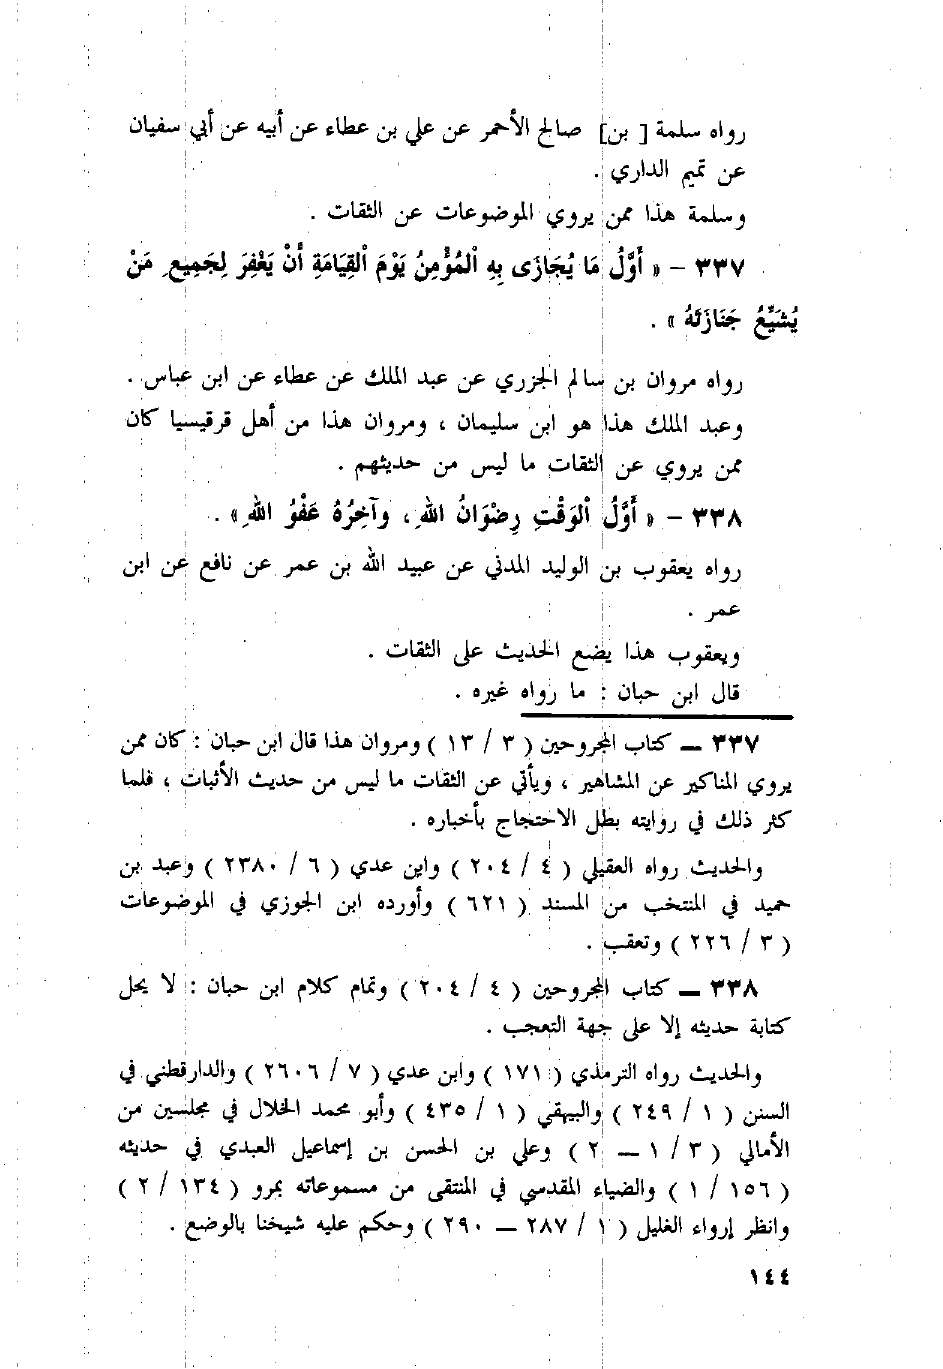 رواه سلمة [ بن] صالح الأحمر عن علي بن عطاء عن أبيه عن أبي سفيان
عن تميم الداري .
وسلمة هذا ممن يروي الموضوعات عن الثقات .
٣٣٧ – « أَوَّلُ مَا يُجَازَى بِهِ الْمُؤْمِنُ يَوْمَ الْقِيَامَةِ أَنْ يَغْفِرَ لِجَمِيعِ مَنْ
يُشَيِّعُ جَنَازَتَهُ » .
رواه مروان بن سالم الجزري عن عبد الملك عن عطاء عن ابن عباس .
وعبد الملك هذا هو ابن سليمان ، ومروان هذا من أهل قرقيسيا كان
ممن يروي عن الثقات ما ليس من حديثهم .
٣٣٨ – « أَوَّلُ الْوَقْتِ رِضْوَانُ اللهِ ، وآخِرُهُ عَفْوُ اللهِ» .
رواه يعقوب بن الوليد المدني عن عبيد الله بن عمر عن نافع عن ابن
عمر .
ويعقوب هذا يضع الحديث على الثقات .
قال ابن حبان : ما رواه غيره .
٣٣٧ – كتاب المجروحين ( ٣ / ١٣ ) ومروان هذا قال ابن حبان : كان ممن
يروي المناكير عن المشاهير ، ويأتي عن الثقات ما ليس من حديث الأثبات ، فلما
كثر ذلك في روايته بطل الاحتجاج بأخباره .
والحديث رواه العقيلي ( ٤ / ٢٠٤ ) وابن عدي ( ٦ / ٢٣٨٠ ) وعبد بن
حميد في المنتخب من المسند ( ٦٢١ ) وأورده ابن الجوزي في الموضوعات
( ٣ / ٢٢٦ ) وتعقب .
٣٣٨ – كتاب المجروحين ( ٤ / ٢٠٤ ) وتمام كلام ابن حبان : لا يحل
كتابة حديثه إلا على جهة التعجب .
والحديث رواه الترمذي ( ١٧١ ) وابن عدي ( ٧ / ٢٦٠٦ ) والدارقطني في
السنن ( ١ / ٢٤٩ ) والبيهقي ( ١ / ٤٣٥ ) وأبو محمد الخلال في مجلسين من
الأمالي ( ٣ / ١ – ٢ ) وعلي بن الحسن بن إسماعيل العبدي في حديثه
( ١٥٦ / ١ ) والضياء المقدسي في المنتقى من مسموعاته بمرو ( ١٣٤ / ٢ )
وانظر إرواء الغليل ( ١ / ٢٨٧ – ٢٩٠ ) وحكم عليه شيخنا بالوضع .
١٤٤